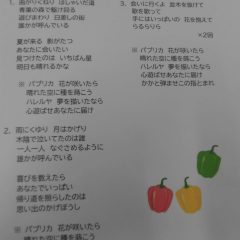 1. 曲がりくねり はしゃいだ道
青葉の森で駆け回る
遊びまわり 日差しの街
誰かが呼んでいる
夏が来る 影がたつ
あなたに会いたい
見つけたのは いちばん星
明日も晴れるかな
※ パプリカ 花が咲いたら
晴れた空に種を蒔こう
ハレルヤ 夢を描いたなら
心遊ばせあなたにとどけ
2. 雨にくゆり 月はかげり
木陰で泣いてたのは誰
一人一人 なぐさめるように
誰かが呼んでいる
喜びを数えたら
あなたでいっぱい
帰り道を照らしたのは
思い出のかげぼうし
※ パプリカ 花が咲いたら
晴れた空に種を蒔こう
3. 会いに行くよ 並木を抜けて
歌を歌って
手にはいっぱいの 花を抱えて
らるらりら
×2回
※ パプリカ 花が咲いたら
晴れた空に種を蒔こう
ハレルヤ 夢を描いたなら
心遊ばせあなたにとどけ
かかと弾ませこの指とまれ